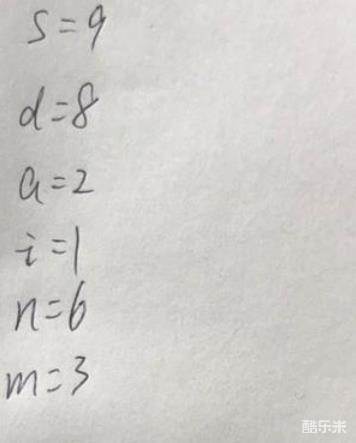 s=9
d=8
a=2
i=1
n=6
m=3
酷乐米